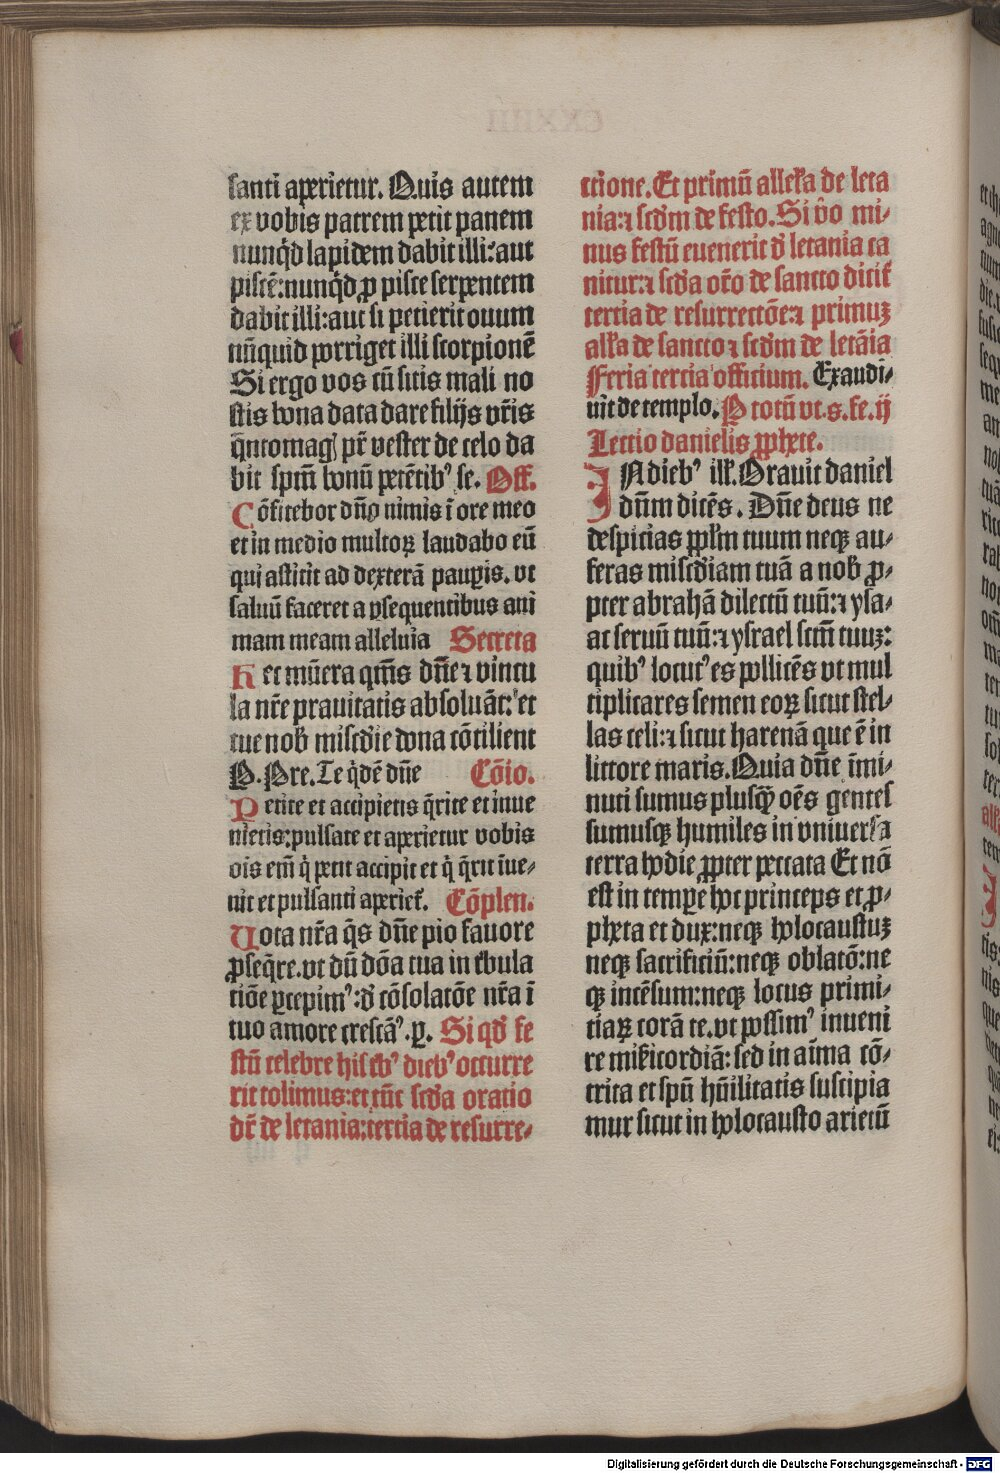 santi aperietur. Quis autem
ex vobis patrem petit panem
nunq̄d lapidem dabit illi: aut
piscē: nunq̄d ꝓ pisce serpentem
dabit illi: aut si petierit ouum
nūquid porriget illi scorpionē
Si ergo vos cū sitis mali no
stis bona data dare filijs vr̄is
q̄ntomagꝭ pr̄ vester de celo da
bit spm̄ bonū petētibꝰ se. Off.
Cōfitebor dn̄o nimis ī ore meo
et in medio multoꝝ laudabo eū
qui astitit ad dexterā pauꝑis. vt
saluū faceret a ꝑsequentibus ani
mam meam alleluia Secreta
Hec mūera qm̄s dn̄e ⁊ vincu
la nr̄e prauitatis absoluāt: et
tue nob miscd̄ie dona cōcilient
P. Pre. Te q̄dē dn̄e Cōio.
Petite et accipietis q̄rite et inue
nietis: pulsate et aperietur vobis
ois em̄ q̄ petit accipit et q̄ q̄rit īue⸗
nit et pulsanti aperiet̄. Cōplen.
Uota nr̄a q̄s dn̄e pio fauore
ꝓseq̄re. vt dū dōa tua in tr̄bula
tiōe ꝑcepimꝰ: d̄ cōsolatōe nr̄a ī
tuo amore crescāꝰ. ꝑ. Si qd̄ fe
stū celebre his trībꝰ diebꝰ occurre
rit colimus: et tūc scd̄a oratio
dr̄ de letania: tertia de resurre⸗
ctione. Et primū allel̄a de leta
nia: ⁊ scd̄m de festo. Si v̄o mi⸗
nus festū euenerit d̄ letania ca
nitur: ⁊ scd̄a or̄o de sancto dicit̄
tertia de resurrectōe: ⁊ primuꝫ
all̄a de sancto ⁊ scd̄m de letāia
Feria tertia officium. Exaudi⸗
uit de templo. P totū vt. s. fe. ij
Lectio danielis ꝓphete.
IN diebꝰ ill̄. Orauit daniel
dūm dicēs. Dn̄e deus ne
despicias ppl̄m tuum neqꝫ au⸗
feras miscd̄iam tuā a nob ꝓ⸗
pter abrahā dilectū tuū: ⁊ ysa⸗
ac seruū tuū: ⁊ ysrael scm̄ tuuꝫ:
quibꝰ locutꝰ es pollicēs vt mul
tiplicares semen eoꝝ sicut stel⸗
las celi: ⁊ sicut harenā que ē in
littore maris. Quia dn̄e īmi⸗
nuti sumus plusqꝫ oēs gentes
sumusqꝫ humiles in vniuersa
terra hodie ꝓpter peccata Et nō
est in tempꝑe hoc princeps et ꝓ⸗
pheta et dux: neqꝫ holocaustuꝫ
neqꝫ sacrificiū: neqꝫ oblatō: ne
qꝫ incēsum: neqꝫ locus primi⸗
tiaꝝ corā te. vt possimꝰ inueni
re mīericordiā: sed in aīma cō⸗
trita et spū hūilitatis suscipia
mur sicut in holocausto arietū
Digitalisierung gefördert durch die Deutsche Forschungsgemeinschaft - DFG